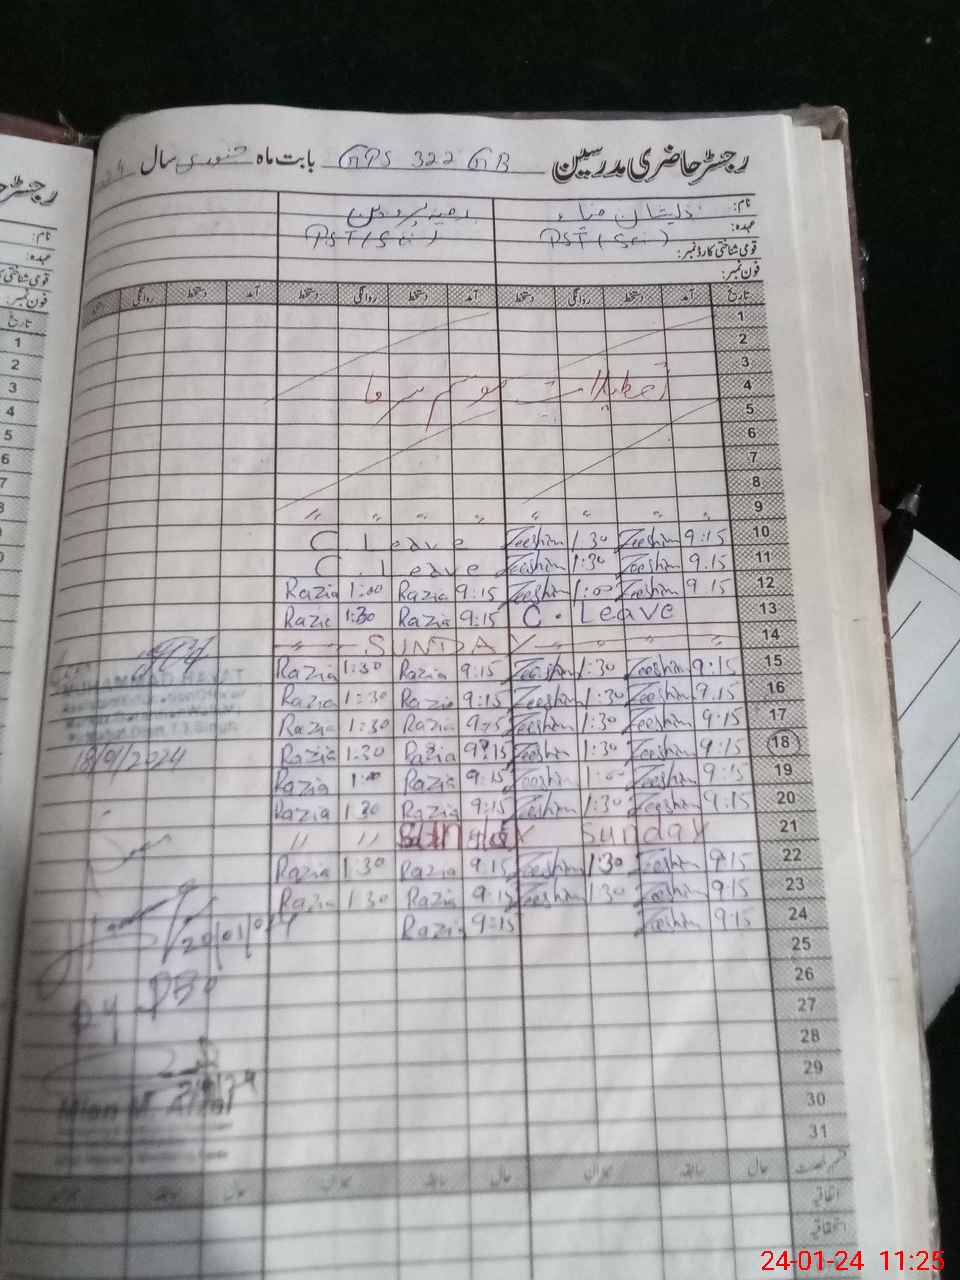 رجسٹر حاضری مدرسین GPS 322 GB بابت ماہ جنوری سال 24
نام: ذیشان ضیاء رضیہ پروین
عہدہ: PST (Sci) PST (Sci)
قومی شناختی کارڈ نمبر:
فون نمبر:
تاریخ آمد دستخط روانگی دستخط آمد دستخط روانگی دستخط آمد دستخط روانگی دستخط
1
2
3
4 تعطیلات موسم سرما
5
6
7
8
9 〃 〃 〃 〃 〃 〃 〃
C. Leave Zeeshan 1:30 Zeeshan 9:15 10
C. Leave Zeeshan 1:30 Zeeshan 9:15 11
Razia 1:00 Razia 9:15 Zeeshan 1:00 Zeeshan 9:15 12
Razia 1:30 Razia 9:15 C. Leave 13
SUNDAY 14
Razia 1:30 Razia 9:15 Zeeshan 1:30 Zeeshan 9:15 15
Razia 1:30 Razia 9:15 Zeeshan 1:30 Zeeshan 9:15 16
Razia 1:30 Razia 9:15 Zeeshan 1:30 Zeeshan 9:15 17
18/01/2024 Razia 1:30 Razia 9:15 Zeeshan 1:30 Zeeshan 9:15 18
Razia 1:00 Razia 9:15 Zeeshan 1:00 Zeeshan 9:15 19
Razia 1:30 Razia 9:15 Zeeshan 1:30 Zeeshan 9:15 20
〃 〃 Sunday Sunday 21
Razia 1:30 Razia 9:15 Zeeshan 1:30 Zeeshan 9:15 22
Razia 1:30 Razia 9:15 Zeeshan 1:30 Zeeshan 9:15 23
20/01/24 Razia 9:15 Zeeshan 9:15 24
25
26
27
28
29
30
31
حال سابقہ میزان حال سابقہ میزان حال سابقہ
اتفاقیہ
استحقاقیہ
24-01-24 11:25